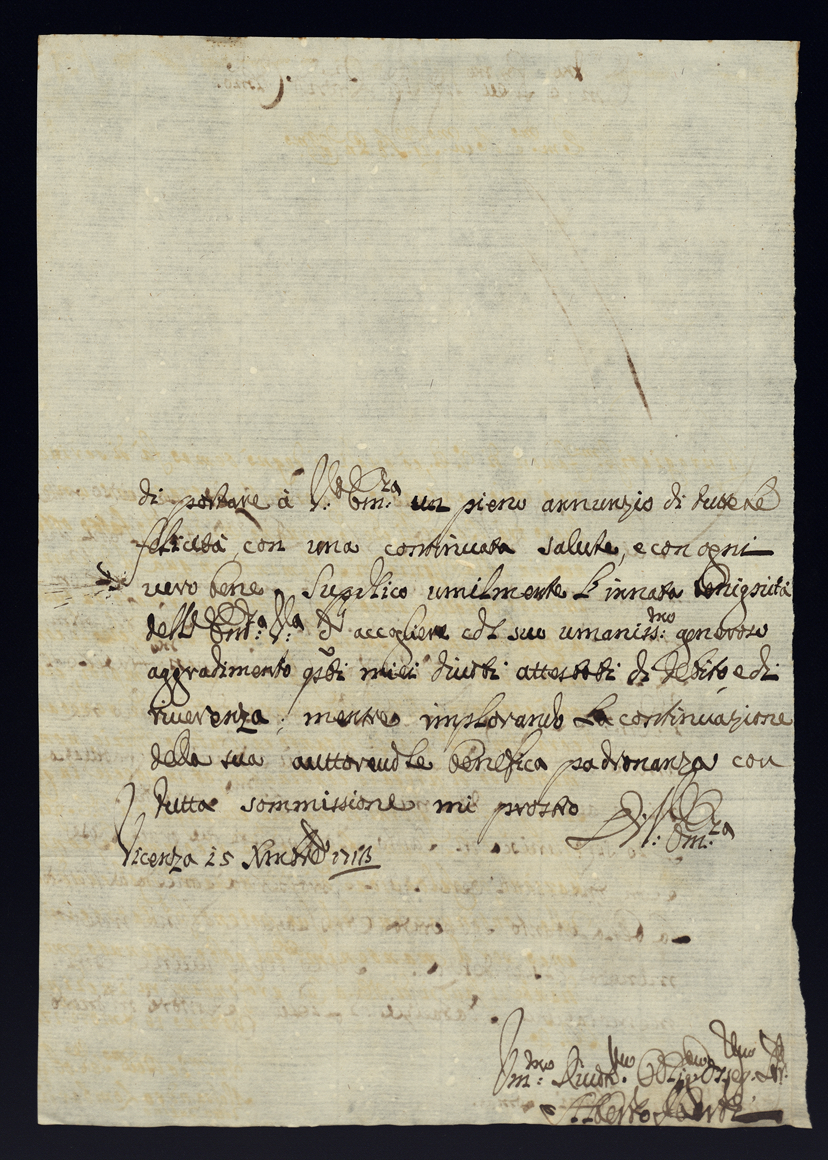 di portare à V.ª Em.za un pieno annunzio di tutte le
felicità, con una continuata salute, e con ogni
vero bene. Supplico umilmente l'innata benignità
dell' Em.za V.ª d' accogliere col suo umaniss.mo generoso
aggradimento q.sti miei divoti attestati di debito, e di
riverenza; mentre implorando la continuazione
della sua auttorevole benefica padronanza con
tutta sommissione mi prostro D. V. Em.za
Vicenza 25 Nmbre 1713
Um.mo Divot.mo Obl.mo Oss.mo Ser.
Alberto